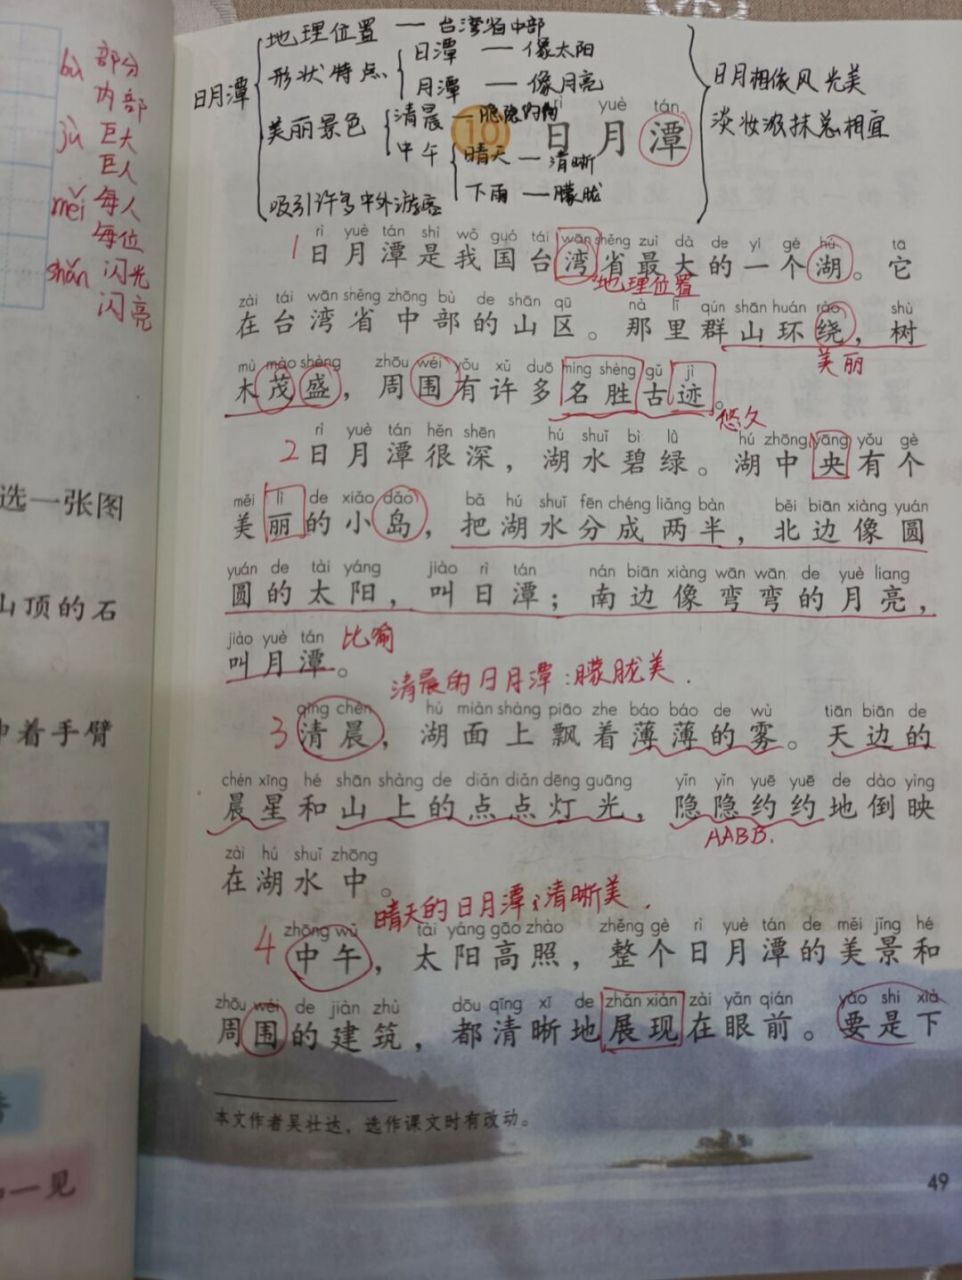 bù 部分
内部
jù 巨大
巨人
měi 每人
每位
shǎn 闪光
闪亮
选一张图
山顶的石
着手臂
一见
日月潭
地理位置 — 台湾省中部
形状特点
日潭 — 像太阳
月潭 — 像月亮
美丽景色
清晨 — 隐隐约约
中午
晴天 — 清晰
下雨 — 朦胧
吸引许多中外游客
日月相依风光美
淡妆浓抹总相宜
rì yuè tán
10 日月潭
rì yuè tán shì wǒ guó tái wān shěng zuì dà de yí gè hú tā
1 日月潭是我国台湾省最大的一个湖。它
地理位置
zài tái wān shěng zhōng bù de shān qū nà lǐ qún shān huán rào shù
在台湾省中部的山区。那里群山环绕，树
美丽
mù mào shèng zhōu wéi yǒu xǔ duō míng shèng gǔ jì
木茂盛，周围有许多名胜古迹。
悠久
rì yuè tán hěn shēn hú shuǐ bì lǜ hú zhōng yāng yǒu gè
2 日月潭很深，湖水碧绿。湖中央有个
měi lì de xiǎo dǎo bǎ hú shuǐ fēn chéng liǎng bàn běi biān xiàng yuán
美丽的小岛，把湖水分成两半，北边像圆
yuán de tài yáng jiào rì tán nán biān xiàng wān wān de yuè liang
圆的太阳，叫日潭；南边像弯弯的月亮，
jiào yuè tán
叫月潭。
比喻
清晨的日月潭：朦胧美.
qīng chén hú miàn shàng piāo zhe báo báo de wù tiān biān de
3 清晨，湖面上飘着薄薄的雾。天边的
chén xīng hé shān shàng de diǎn diǎn dēng guāng yǐn yǐn yuē yuē de dào yìng
晨星和山上的点点灯光，隐隐约约地倒映
AABB.
zài hú shuǐ zhōng
在湖水中。
晴天的日月潭：清晰美.
zhōng wǔ tài yáng gāo zhào zhěng gè rì yuè tán de měi jǐng hé
4 中午，太阳高照，整个日月潭的美景和
zhōu wéi de jiàn zhù dōu qīng xī de zhǎn xiàn zài yǎn qián yào shi xià
周围的建筑，都清晰地展现在眼前。要是下
本文作者吴壮达，选作课文时有改动。
49